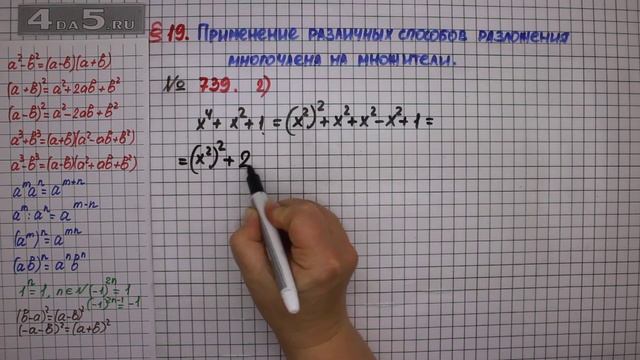 4DA5.RU
§ 19. Применение различных способов разложения
многочлена на множители.
№ 739. 2)
x⁴ + x² + 1 = (x²)² + x² + x² - x² + 1 =
= (x²)² + 2
a² - b² = (a-b)(a+b)
(a+b)² = a² + 2ab + b²
(a-b)² = a² - 2ab + b²
a³ + b³ = (a+b)(a² - ab + b²)
a³ - b³ = (a-b)(a² + ab + b²)
aᵐaⁿ = aᵐ⁺ⁿ
aᵐ : aⁿ = aᵐ⁻ⁿ
(aᵐ)ⁿ = aᵐⁿ
(ab)ⁿ = aⁿbⁿ
1ⁿ = 1, n∈N (-1)²ⁿ = 1
(-1)²ⁿ⁻¹ = -1
(b-a)² = (a-b)²
(-a-b)² = (a+b)²